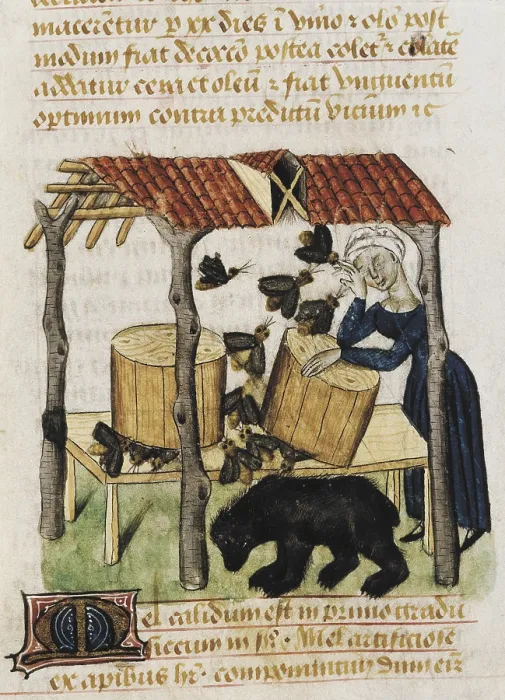 maceretur p xx dies ī vino et oleo post
modum fiat decoctō postea coletr et colatē
addatur cera et oleū et fiat vnguentū
optimum contra predictū vicium ⁊c
Mel calidum est in primo gradu
siccum in s̄o. Mel artificiose
ex apibus hr̄. componintur dum eīz